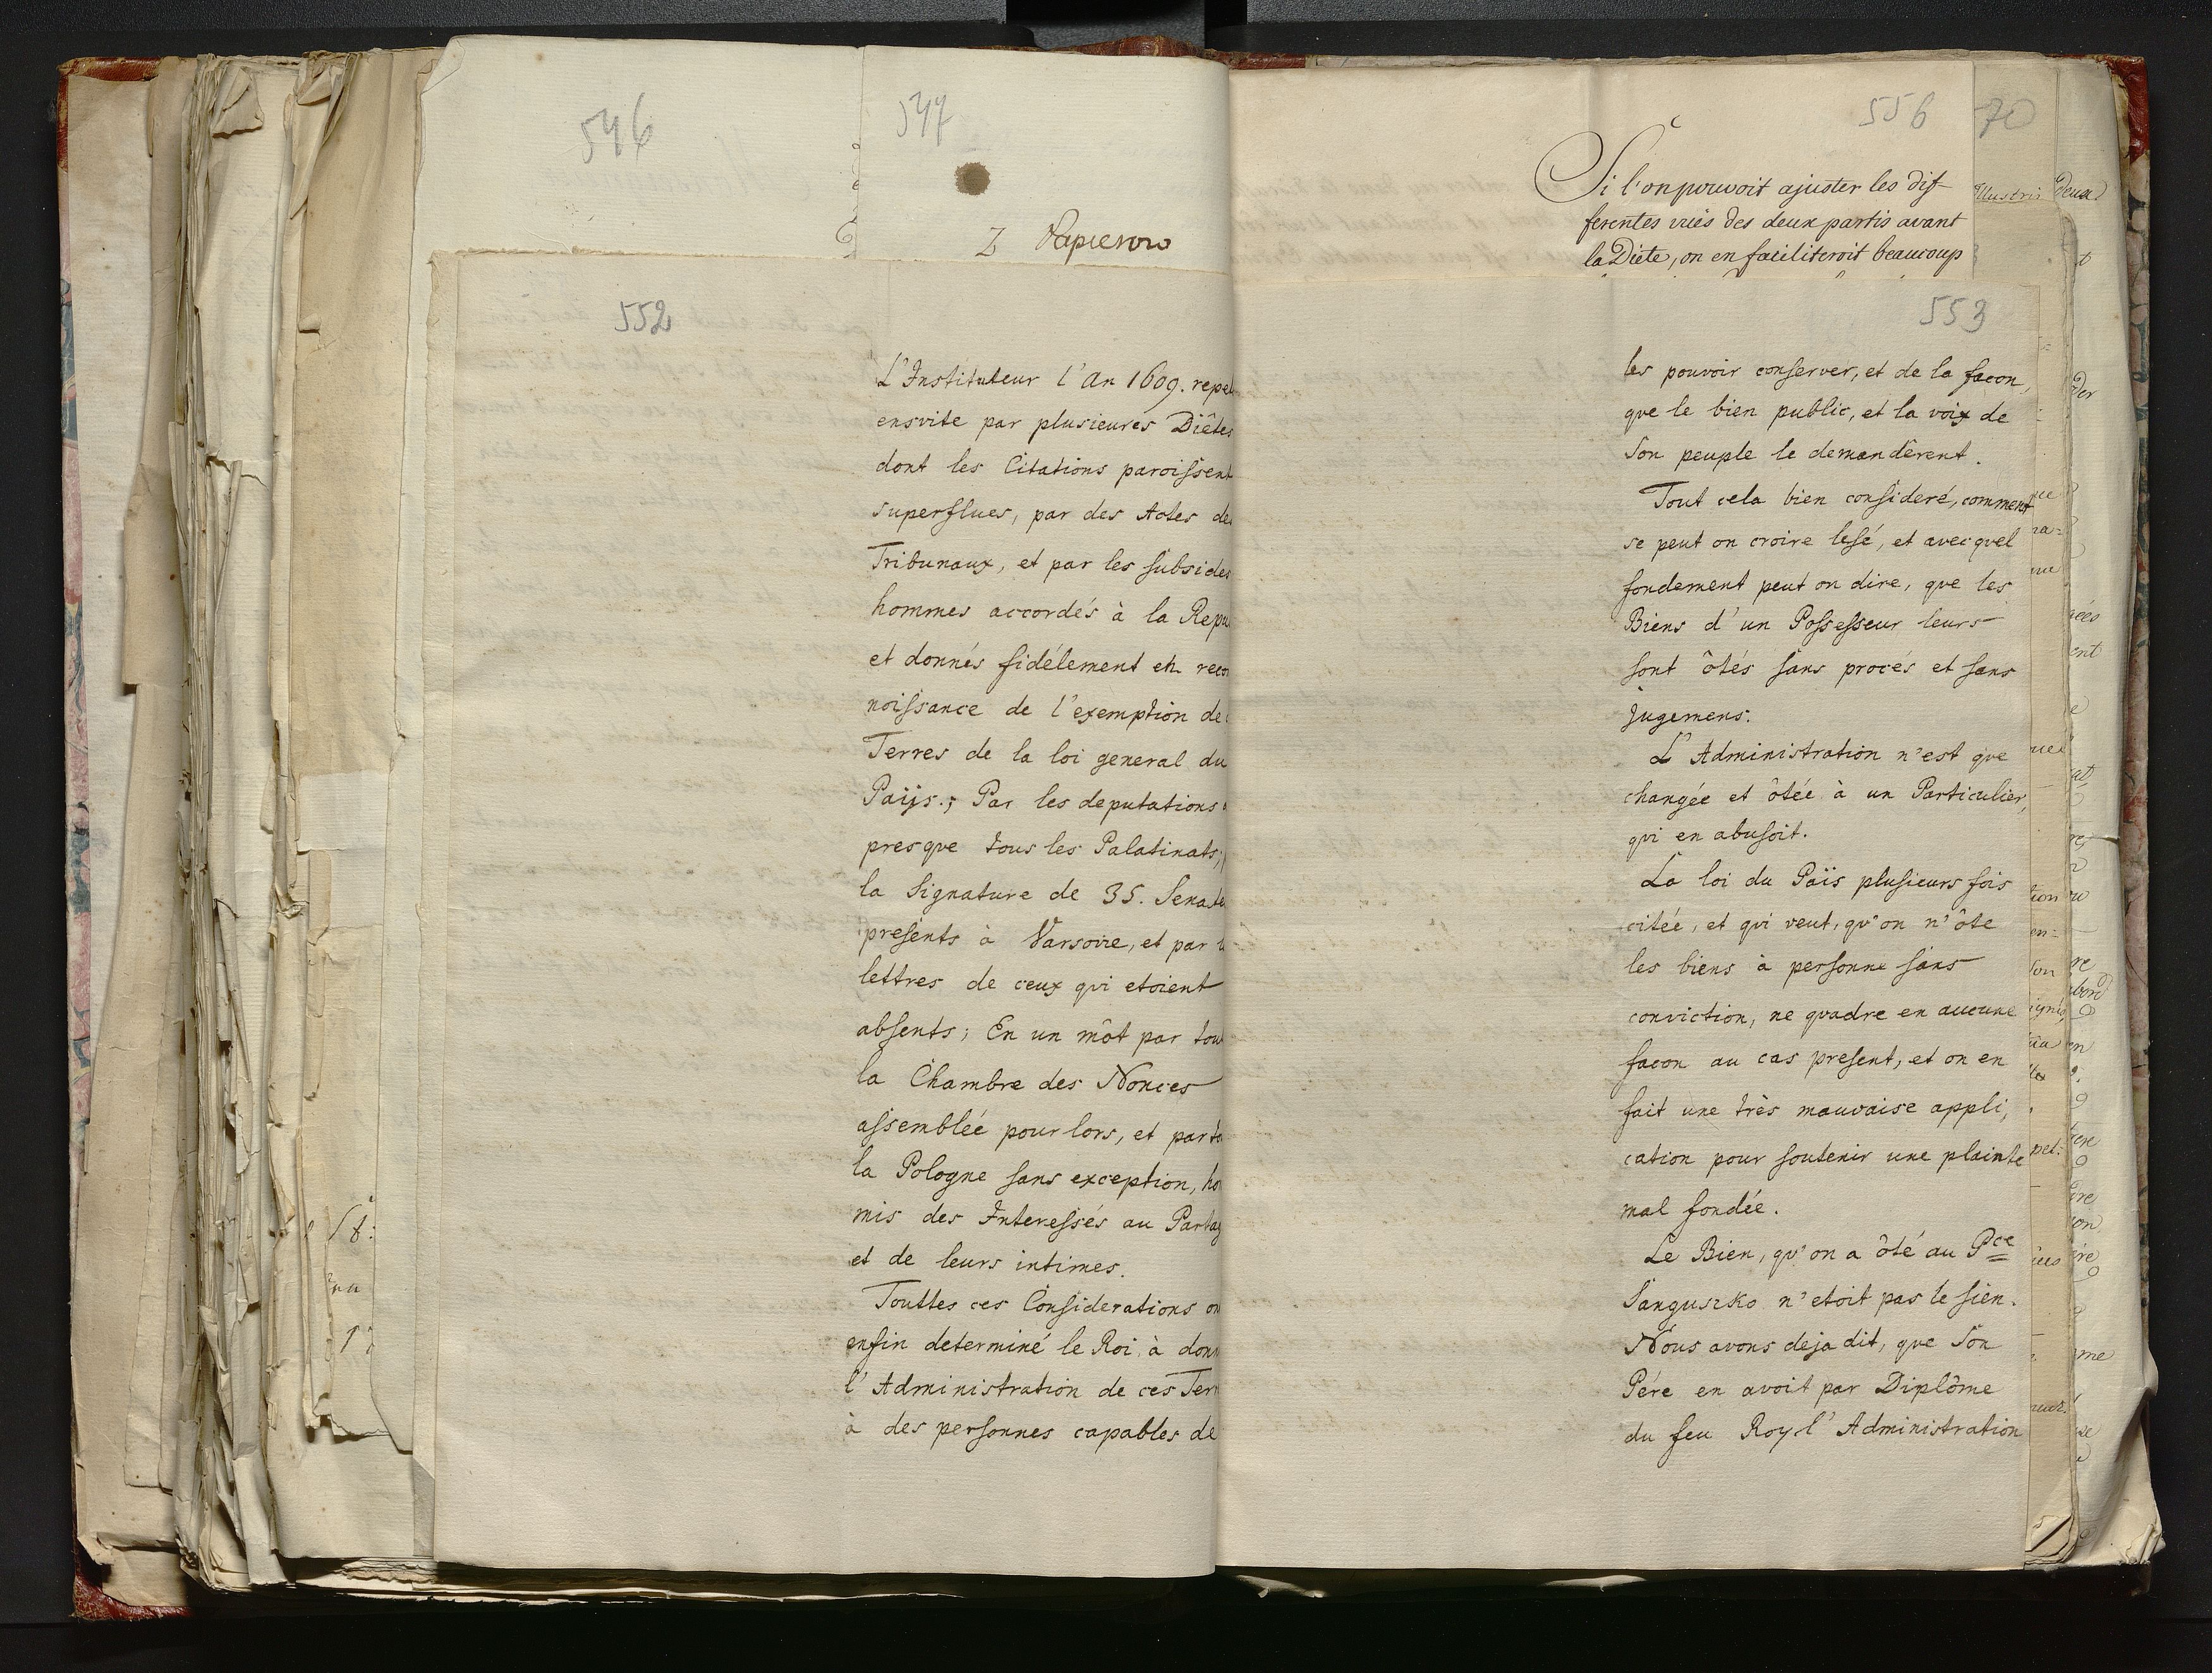 546
547
Z Papierow
552
L'Instituteur l'An 1609. repe
ensvite par plusieures Diêtes
dont les Citations paroissent
superflues, par des Actes de
Tribunaux, et par les subsides
hommes accordés à la Repu
et donnés fidélement en reco
noissance de l'exemption de
Terres de la loi general du
Païjs.; Par les deputations
presque tous les Palatinats;
la Signature de 35. Senate
presents à Varsovie, et par
lettres de ceux qui etoient
absents; En un môt par tou
la Chambre des Nonces
assemblée pour lors, et par to
la Pologne sans exception, ho
mis des Interessés au Partag
et de leurs intimes.
Touttes ces Considerations on
enfin determiné le Roi à donn
l'Administration de ces Terr
à des personnes capables de
556
70
Si l'on pouvoit ajuster les dif-
ferentes vuës des deux partis avant
la Diete, on en faciliteroit beaucoup
Illustris
deux
553
les pouvoir conserver, et de la facon,
que le bien public, et la voix de
Son peuple le demandêrent.
Tout cela bien consideré, comment
se peut on croire lesé, et avec quel
fondement peut on dire, que les
Biens d'un Possesseur leurs
sont ôtés sans procés et sans
jugemens.
L'Administration n'est que
changée et ôtée à un Particulier,
qui en abusoit.
La loi du Païs plusieurs fois
citée, et qui veut, qu'on n'ôte
les biens à personne sans
conviction, ne quadre en aucune
facon au cas present, et on en
fait une très mauvaise appli,
cation pour soutenir une plainte
mal fondée.
Le Bien, qu'on a ôté au Pce
Sanguszko n'etoit pas le sien.
Nous avons deja dit, que Son
Pére en avoit par Diplôme
du feu Roy l'Administration